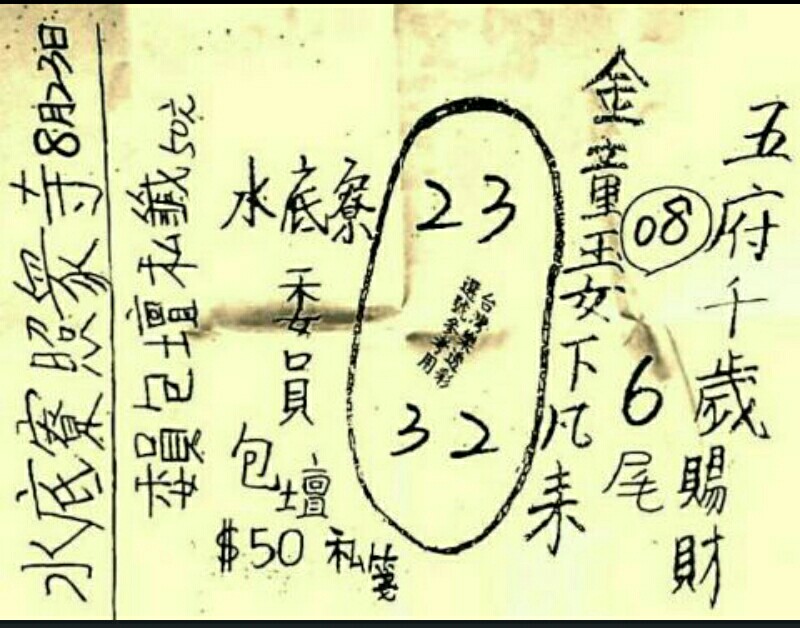 五府千歲賜財
08
6尾
金童玉女下凡来
23
台灣樂透彩
選號參考用
32
水底寮
委員
包壇
$50 私箋
委員包壇私籤50元
水底寮照衆寺8月23日